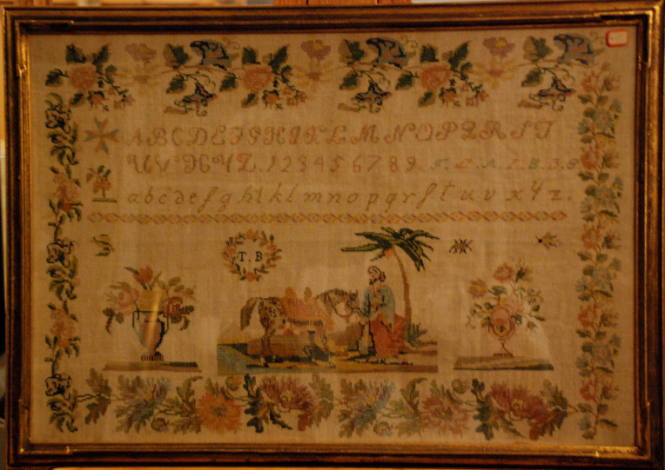 ABCDEFGHIKLMNOPQRST
UVWXYZ.123456789
abcdefghiklmnopqrstuvxyz.
T.B